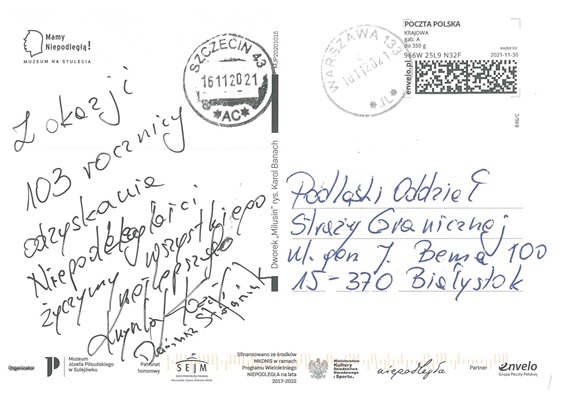 Mamy
Niepodległą!
MUZEUM NA STULECIE
SZCZECIN 43
16112021
*AC*
WARSZAWA 133
10112021
*JL*
POCZTA POLSKA
KRAJOWA
gab. A
do 350 g
966W 25L9 N32F
WAŻNE DO
2021-11-30
envelo.pl
846/C
MJP20201015
Dworek „Milusin” rys. Karol Banach
Z okazji
103 rocznicy
odzyskania
Niepodległości
wszystkiego
najlepszego
życzymy
Podlaski Oddział
Straży Granicznej
ul. gen J. Bema 100
15-370 Białystok
Organizator
Muzeum
Józefa Piłsudskiego
w Sulejówku
Patronat
honorowy
SEJM
Sfinansowano ze środków
MKDNiS w ramach
Programu Wieloletniego
NIEPODLEGŁA na lata
2017-2022
Ministerstwo
Kultury
Dziedzictwa
Narodowego
i Sportu.
niepodległa
Partner
envelo
Grupa Poczty Polskiej